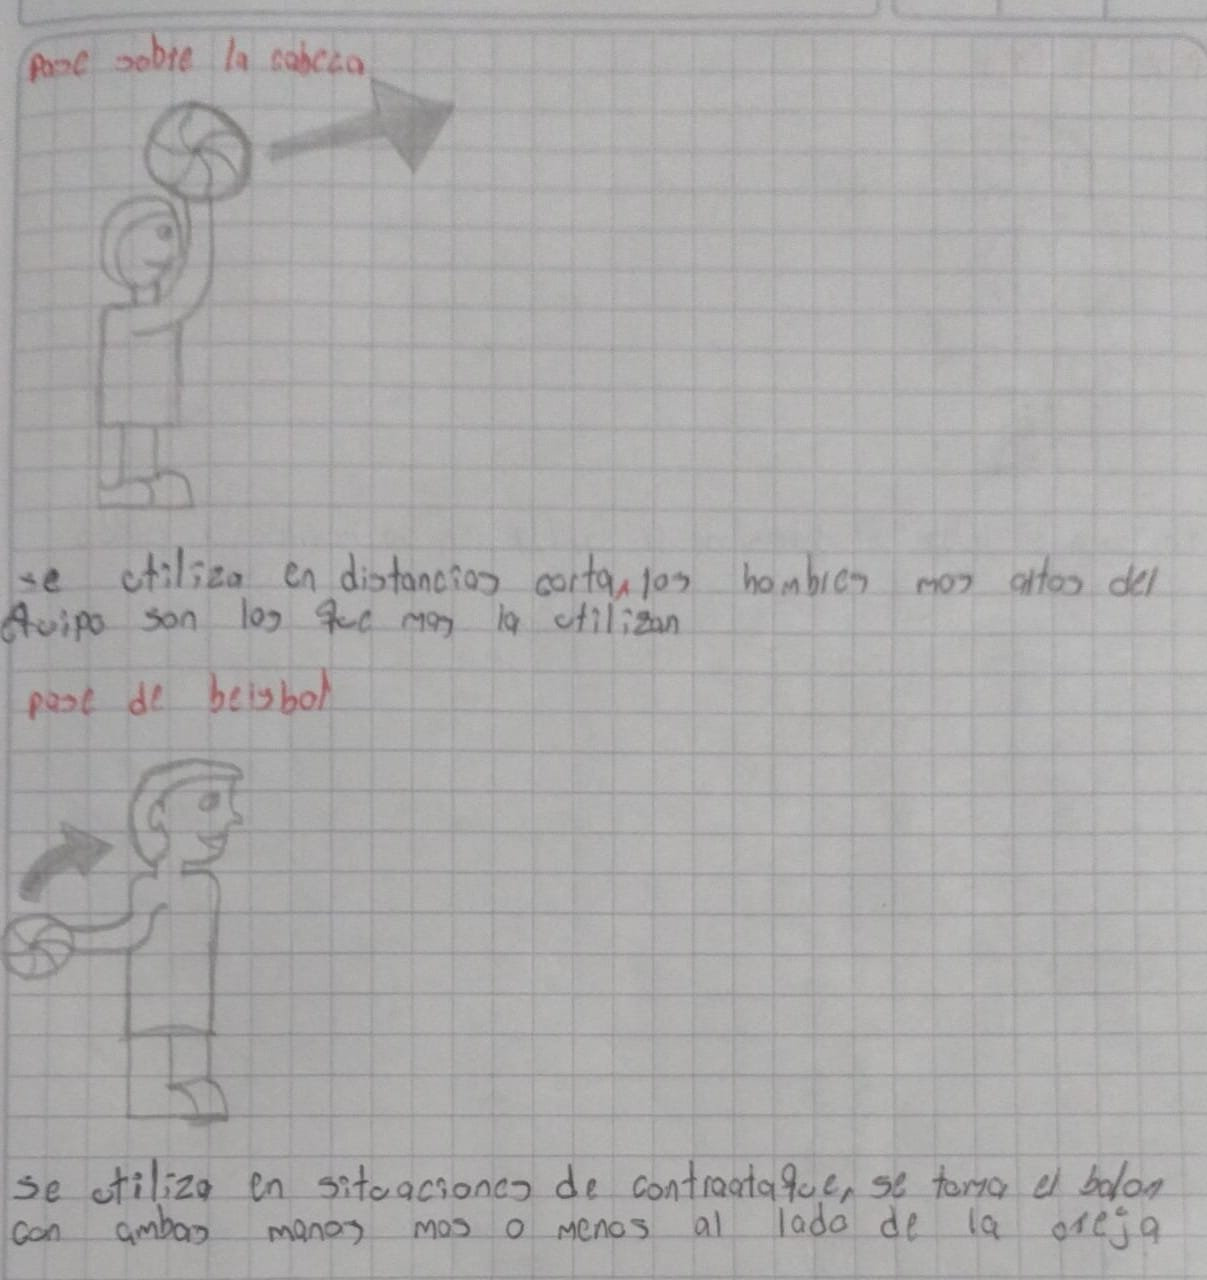 pase sobre la cabeza
se utiliza en distancias corta, los hombres mas altos del
equipo son los que mas la utilizan
pase de beisbol
se utiliza en situaciones de contraataque, se toma el balon
con ambas manos mas o menos al lado de la oreja